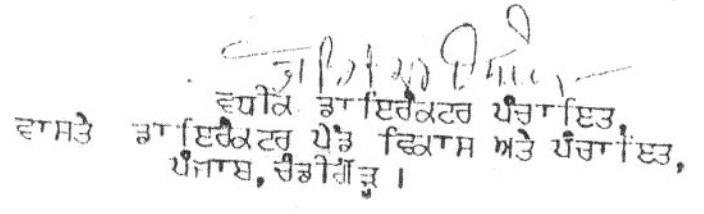 ਵਧੀਕ ਡਾਇਰੈਕਟਰ ਪੰਚਾਇਤ,
ਵਾਸਤੇ ਡਾਇਰੈਕਟਰ ਪੇਂਡੂ ਵਿਕਾਸ ਅਤੇ ਪੰਚਾਇਤ,
ਪੰਜਾਬ, ਚੰਡੀਗੜ੍ਹ ।